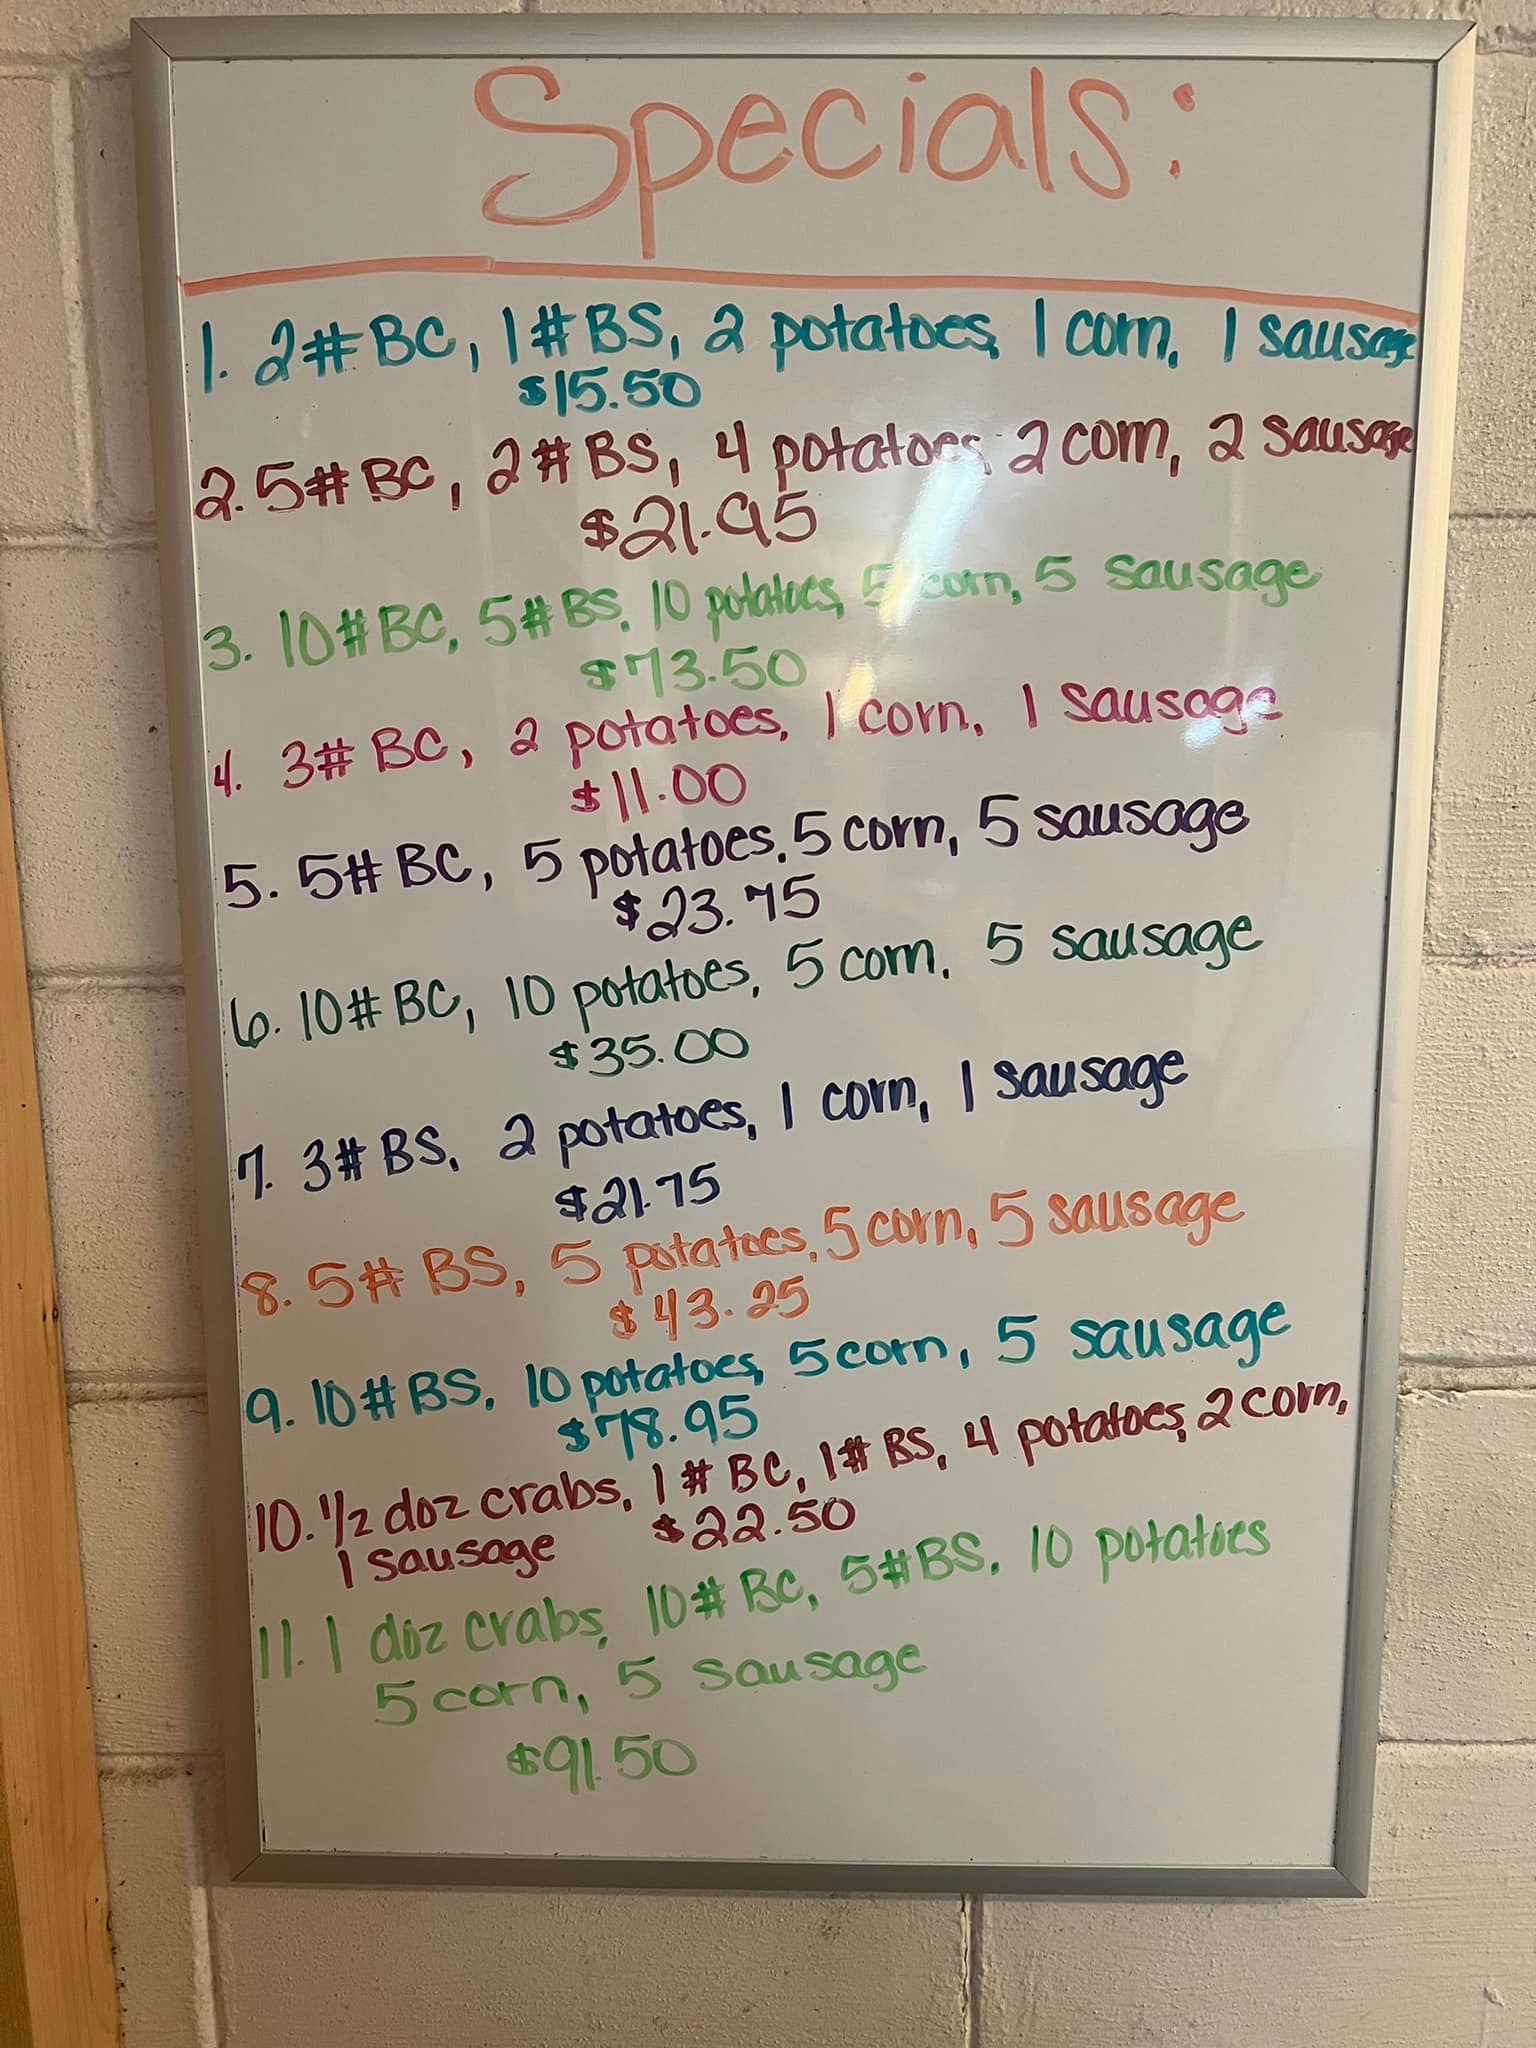 Specials:
1. 2# BC, 1# BS, 2 potatoes, 1 corn, 1 sausage
$15.50
2. 5# BC, 2# BS, 4 potatoes, 2 corn, 2 sausage
$21.95
3. 10# BC, 5# BS, 10 potatoes, 5 corn, 5 sausage
$73.50
4. 3# BC, 2 potatoes, 1 corn, 1 sausage
$11.00
5. 5# BC, 5 potatoes, 5 corn, 5 sausage
$23.75
6. 10# BC, 10 potatoes, 5 corn, 5 sausage
$35.00
7. 3# BS, 2 potatoes, 1 corn, 1 sausage
$21.75
8. 5# BS, 5 potatoes, 5 corn, 5 sausage
$43.25
9. 10# BS, 10 potatoes, 5 corn, 5 sausage
$78.95
10. 1/2 doz crabs, 1# BC, 1# BS, 4 potatoes, 2 corn,
1 sausage $22.50
11. 1 doz crabs, 10# BC, 5# BS, 10 potatoes
5 corn, 5 sausage
$91.50